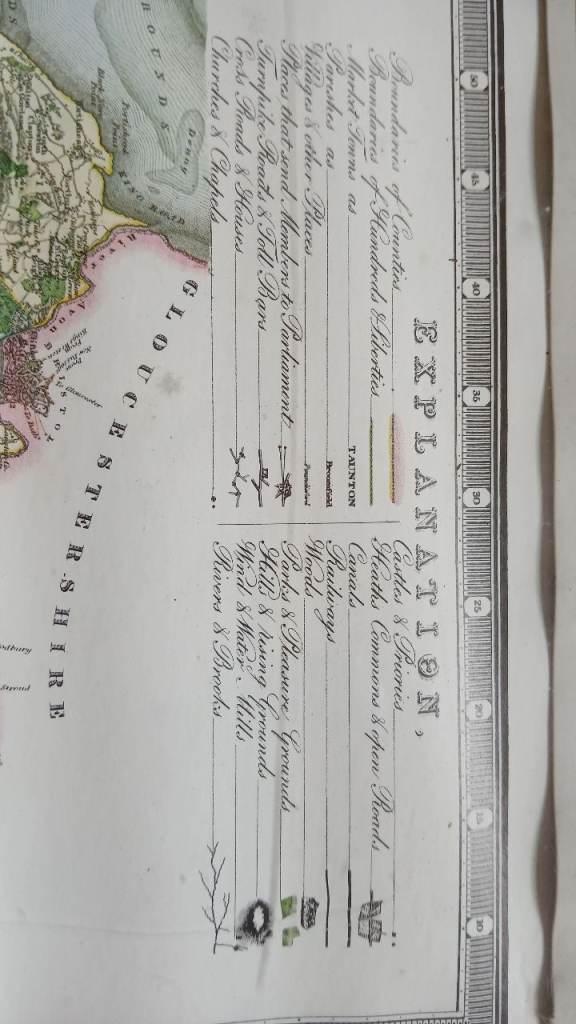 EXPLANATION,
Boundaries of Counties
Boundaries of Hundreds & Liberties
Market Towns as TAUNTON
Parishes as Broomfield
Villages & other Places
Places that send Members to Parliament
Turnpike Roads & Toll Bars
Cross Roads & Houses
Churches & Chapels
Castles & Priories
Heaths Commons & open Roads
Canals
Railways
Woods
Parks & Pleasure Grounds
Hills & rising Grounds
Wind & Water Mills
Rivers & Brooks
50 45 40 35 30 25 20 15 10
GLOUCESTERSHIRE
KING ROAD
River Avon
OUNDS
DS